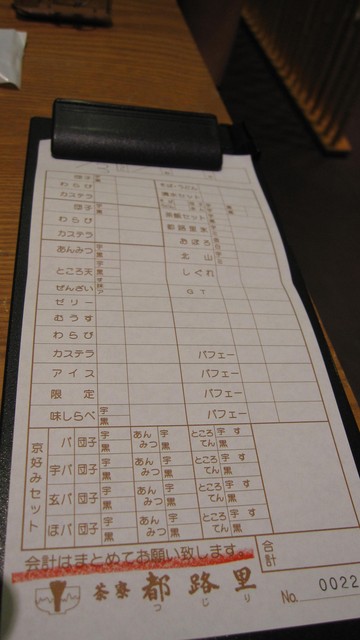 団子
わらび
カステラ
団子
わらび
カステラ
あんみつ 宇 黒
ところ天 宇 黒
ぜんざい
ゼリー
むうす
わらび
カステラ パフェー
アイス パフェー
限定 パフェー
味しらべ 宇 黒 パフェー
おぼろ
北山
しぐれ
GT
京好みセット
パ 団子 宇 黒 あんみつ 宇 黒 ところてん 宇 す 黒
宇パ 団子 宇 黒 あんみつ 宇 黒 ところてん 宇 す 黒
玄パ 団子 宇 黒 あんみつ 宇 黒 ところてん 宇 す 黒
ほパ 団子 宇 黒 あんみつ 宇 黒 ところてん 宇 す 黒
会計はまとめてお願い致します。
合計
茶寮 都路里
つじり
No. 0022